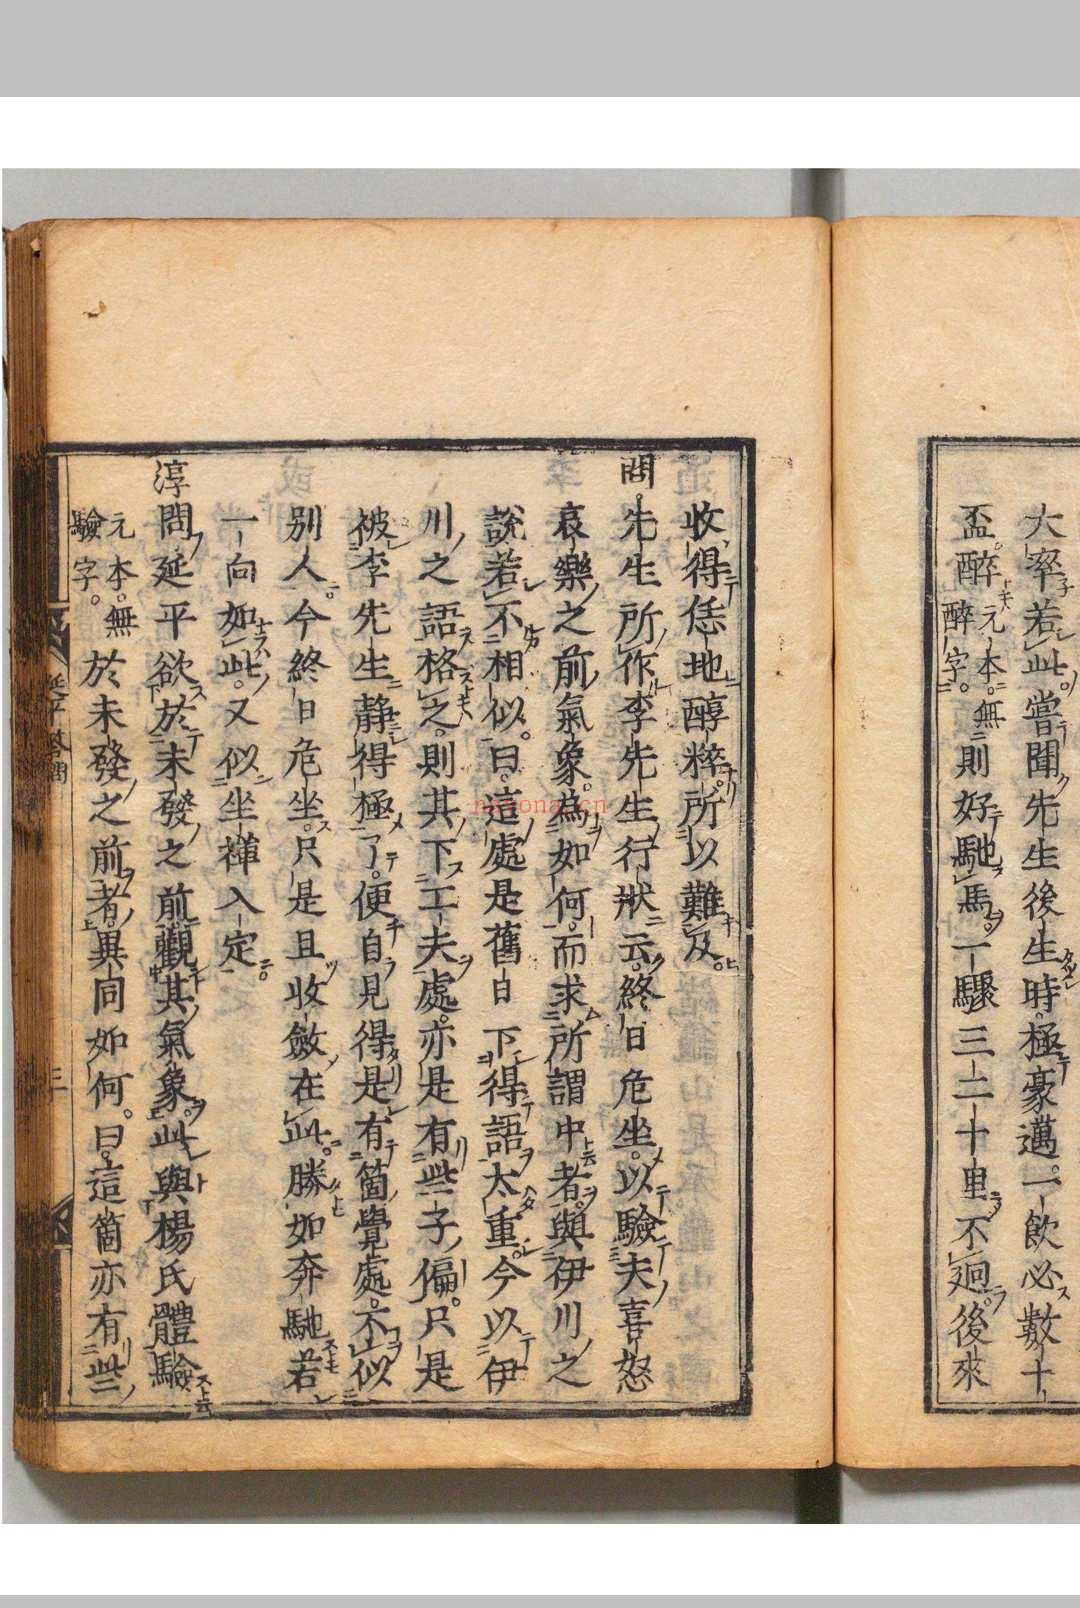 大率若此。嘗聞先生後生時。極豪邁。一飲必數十
盃。醉元本。無醉字。則好馳馬。一驟三二十里。不廻。後來
收得恁地醇粹。所以難及。
問。先生所作李先生行狀云。終日危坐。以驗夫喜怒
哀樂之前氣象。為如何。而求所謂中者。與伊川之
說若不相似。曰。這處是舊日下得語太重。今以伊
川之語格之。則其下工夫處。亦是有些子偏。只是
被李先生靜得極了。便自見得是有箇覺處。不似
別人今終日危坐。只是且收斂在此。勝如奔馳若
一向如此。又似坐禪入定。
淳問。延平欲於未發之前觀其氣象。此與楊氏體驗
元本。無驗字。於未發之前者。異同如何。曰。這箇亦有些
延平答問
三
nayona.cn